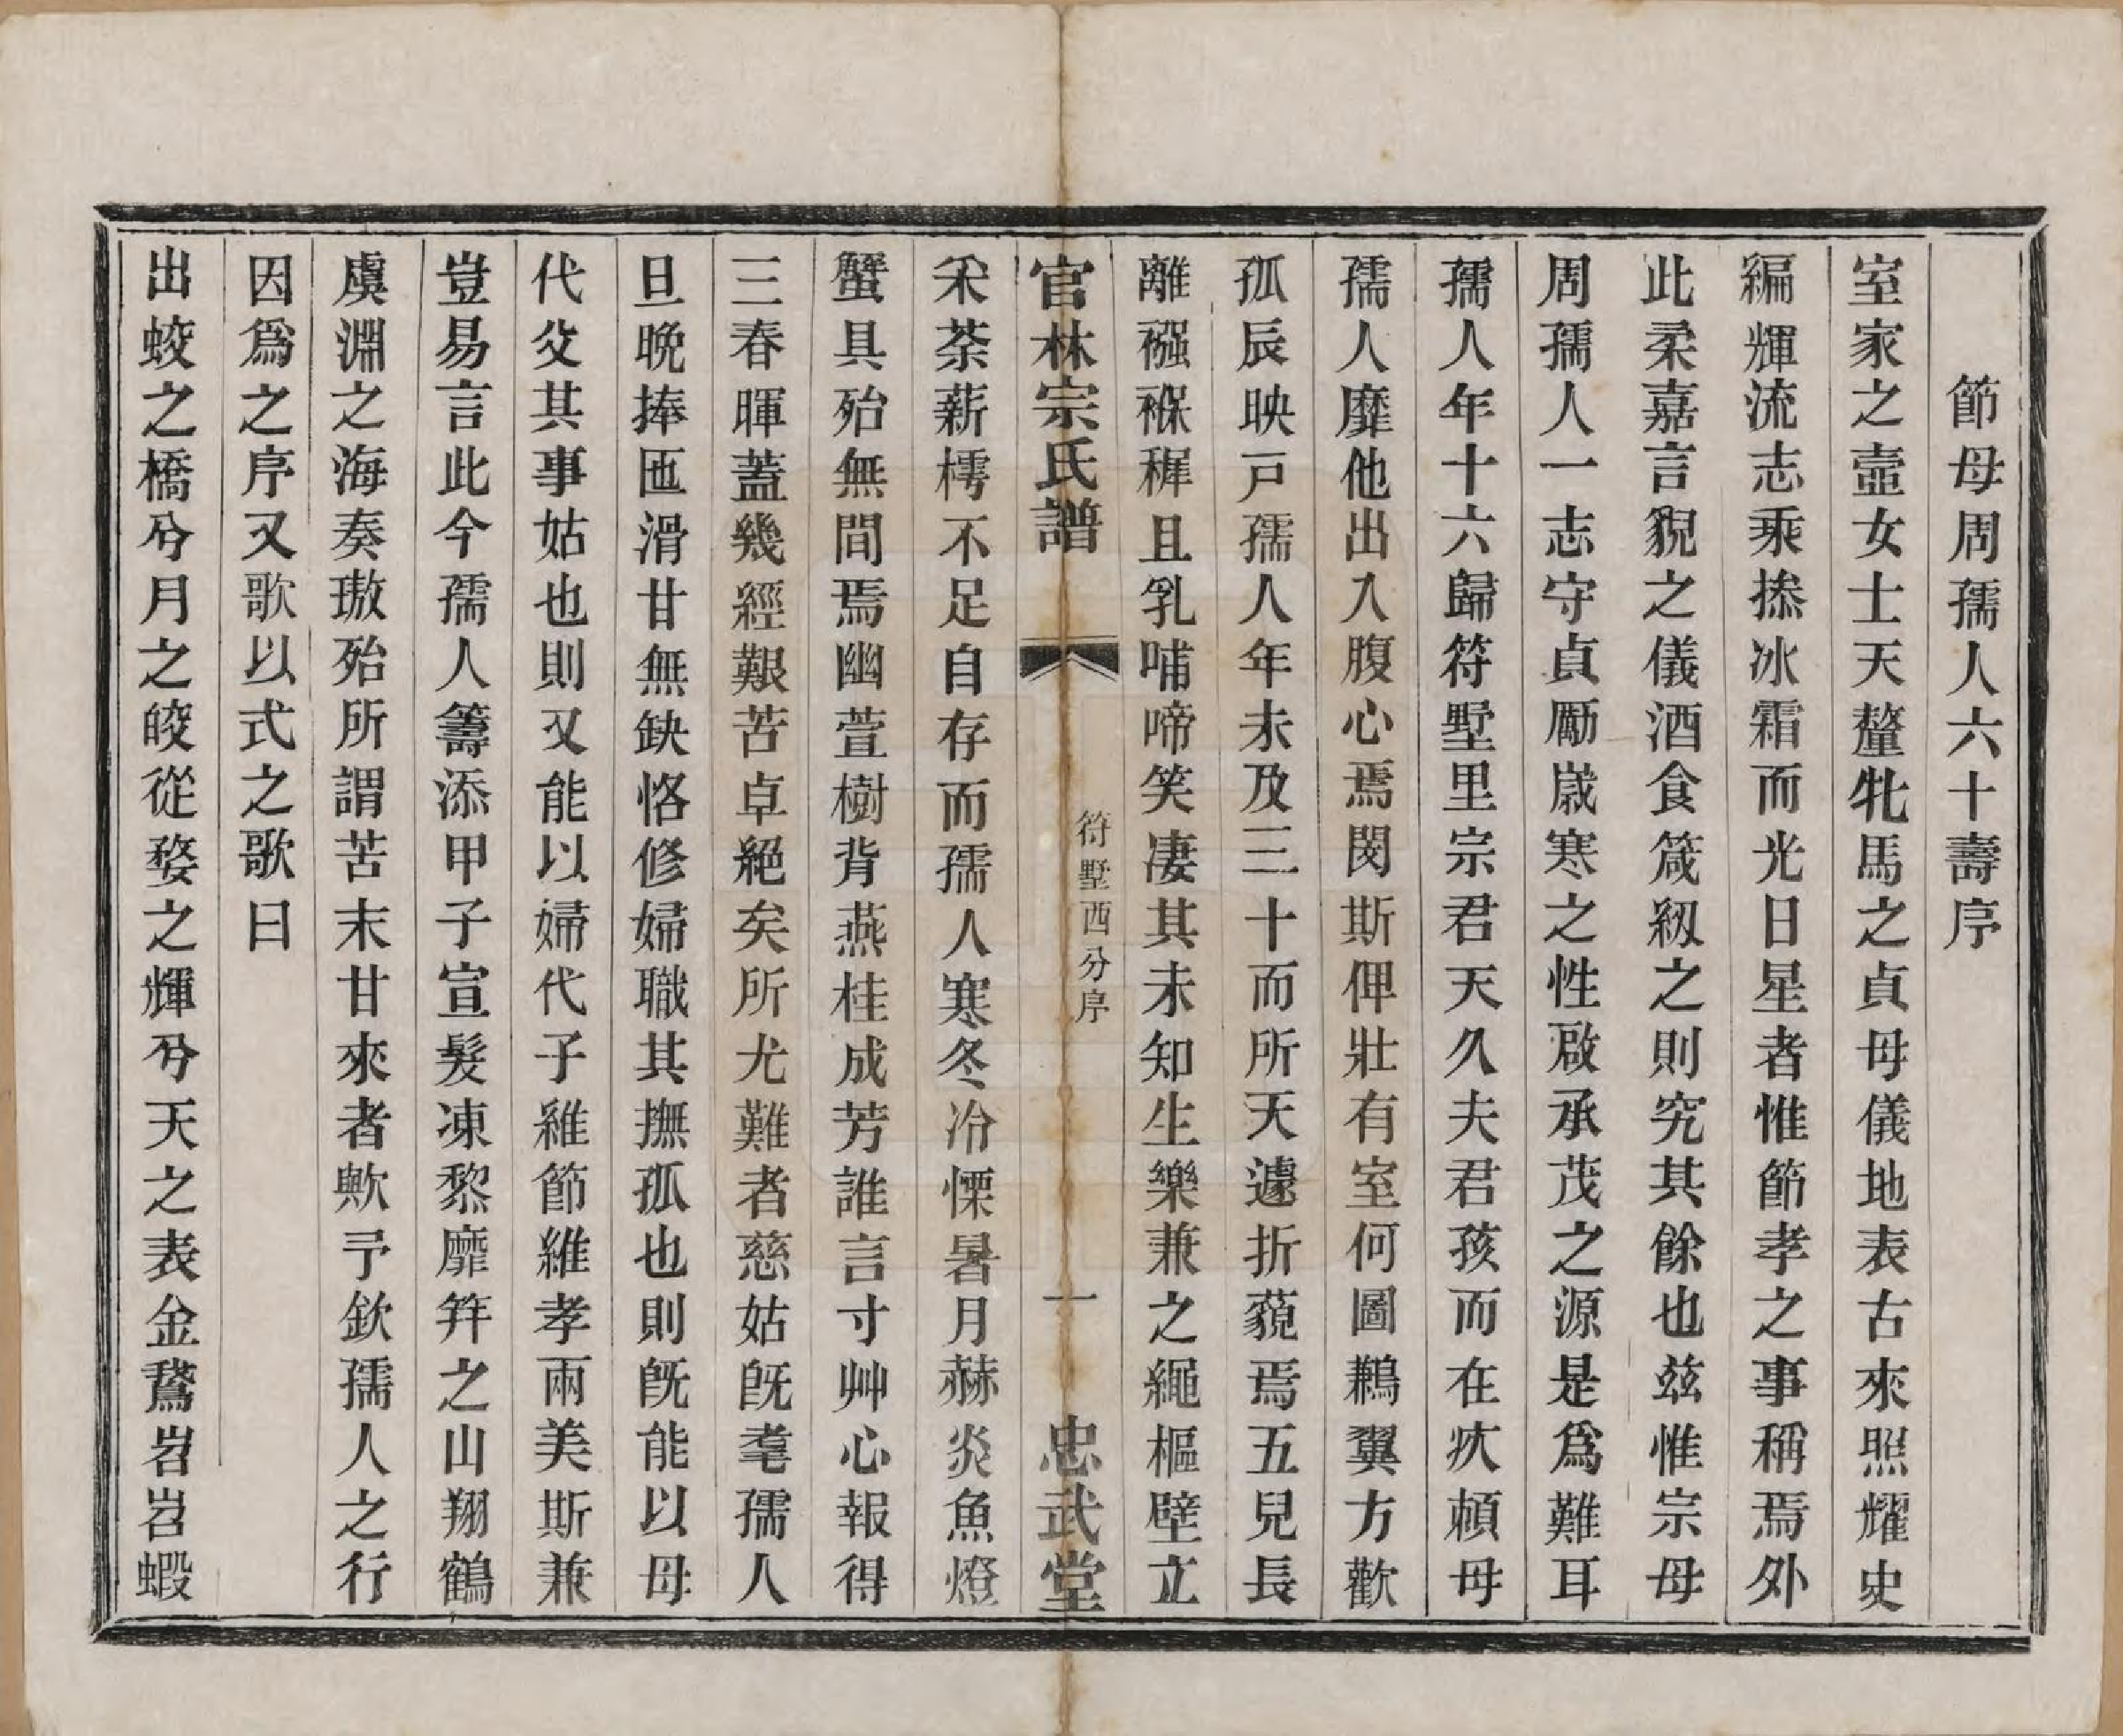 節母周孺人六十壽序
室家之壼女士天釐牝馬之貞母儀地表古來照耀史
編輝流志乘掺冰霜而光日星者惟節孝之事稱焉外
此柔嘉言貌之儀酒食箴紉之則究其餘也玆惟宗母
周孺人一志守貞勵歲寒之性啟承茂之源是爲難耳
孺人年十六歸符墅里宗君天久夫君孩而在疚頼母
孺人靡他出入腹心焉閔斯俾壯有室何圖鶼翼方歡
孤辰映戸孺人年未及三十而所天遽折藐焉五兒長
離襁褓穉且乳哺啼笑凄其未知生樂兼之繩樞壁立
官林宗氏譜
符墅西分序
一
忠武堂
采荼薪樗不足自存而孺人寒冬冷慄暑月赫炎魚燈
蟹具殆無間焉幽萱樹背燕桂成芳誰言寸艸心報得
三春暉蓋幾經艱苦卓絕矣所尤難者慈姑旣耄孺人
旦晚捧匜滑甘無缺恪修婦職其撫孤也則旣能以母
代父其事姑也則又能以婦代子維節維孝兩美斯兼
豈易言此今孺人籌添甲子宣髮凍黎靡筓之山翔鶴
虞淵之海奏璈殆所謂苦末甘來者歟予欽孺人之行
因爲之序又歌以式之歌曰
出蛟之橋兮月之皎從婺之輝兮天之表金鵞岧岧蝦